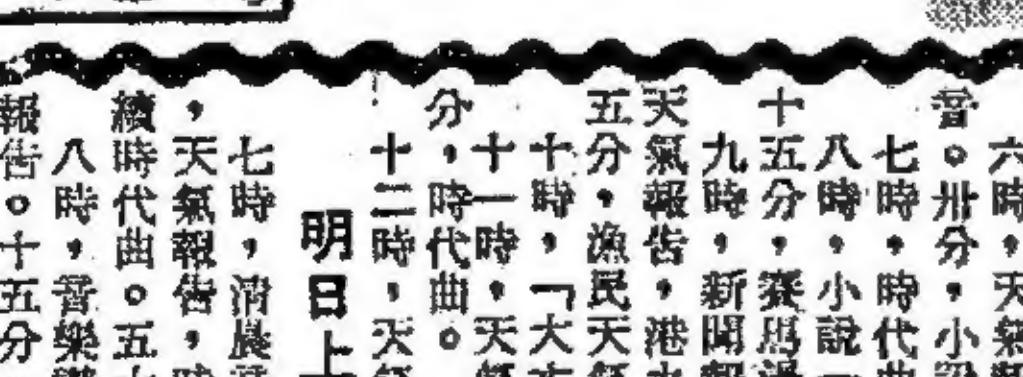 六時，天氣
音。卅分，小
七時，時代曲
八時，小說
十五分，賽馬
九時，新聞報
天氣報告，港
五分，漁民天氣
十時，「大
十一時，天氣
分，時代曲。
十二時，天氣
明日上
七時，清晨
，天氣報告，時
續時代曲。五
八時，音樂
報告。十五分